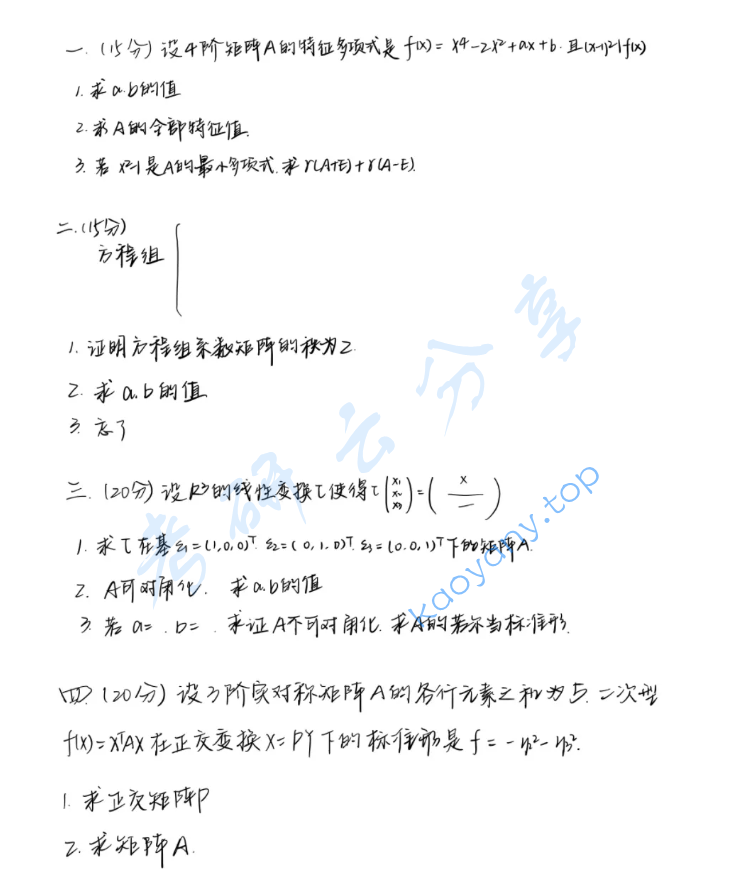 一. (15分) 设4阶矩阵A的特征多项式是 f(x)= x4-2x2+ax+b. 且(x-1)2|f(x)
1. 求 a.b的值
2. 求A的全部特征值.
3. 若 x2-1是A的最小多项式. 求 r(A+E)+r(A-E).
二.(15分)
方程组 {
1. 证明方程组系数矩阵的秩为2.
2. 求 a.b的值
3. 忘了
三. (20分) 设R3的线性变换τ使得τ(x1 x2 x3)=( x — — )
1. 求τ在基ε1=(1,0,0)T. ε2=(0,1,0)T. ε3=(0.0,1)T下的矩阵A.
2. A可对角化. 求a.b的值
3. 若 a= . b= . 求证A不可对角化. 求A的若尔当标准形.
四. (20分) 设3阶实对称矩阵A的各行元素之和为5. 二次型
f(x)=XTAX在正交变换X=PY下的标准形是 f= -y2-y32.
1. 求正交矩阵P
2. 求矩阵A.
考研云分享
kaoyany.top